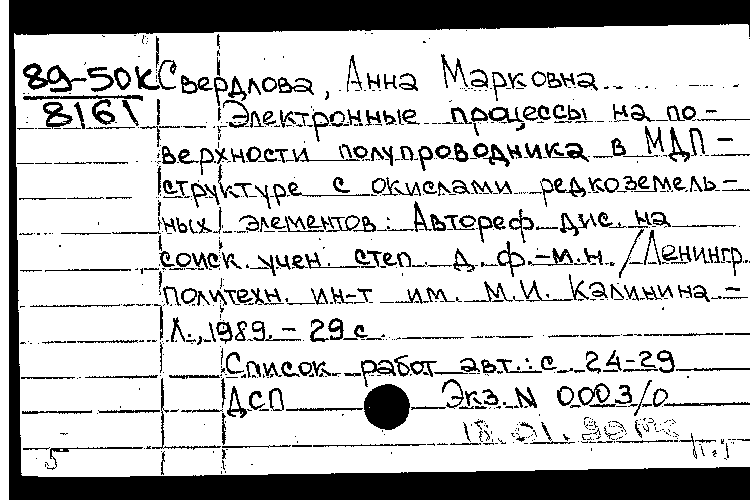 89-50к Свердлова, Анна Марковна
8161 Электронные процессы на по-
верхности полупроводника в МДП-
структуре с окислами редкоземель-
ных элементов: Автореф. дис. на
соиск. учен. степ. д. ф.-м.н. / Ленингр.
политехн. ин-т им. М.И. Калинина -
Л., 1989. - 29 с.
Список работ авт.: с. 24-29
ДСП Экз. N 0003/0
18.01.90
5